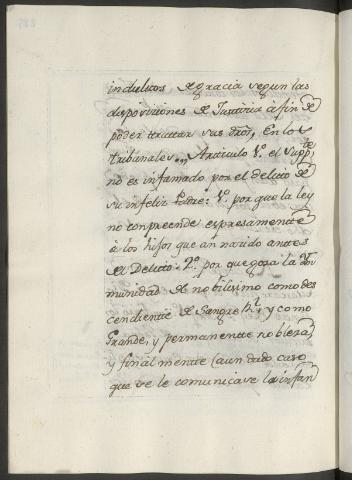 indultos de gracia segun las
disposiziones de Justicia à fin de
poder trattar sus dros, En los
tribunales,,, Articulo 1º. el Suppte
no es infamado por el delicto de
su infeliz Padre: 1º. por que la ley
no conpreende espresamente
à los hijos que an nazido antes
del Delicto: 2º. por que goza la Ym
munidad de nobilissimo como des
cendiente de Sangre Rl, y como
Grande, y permanente nobleza,
y finalmente (aun dado caso
que se le comunicase la infan